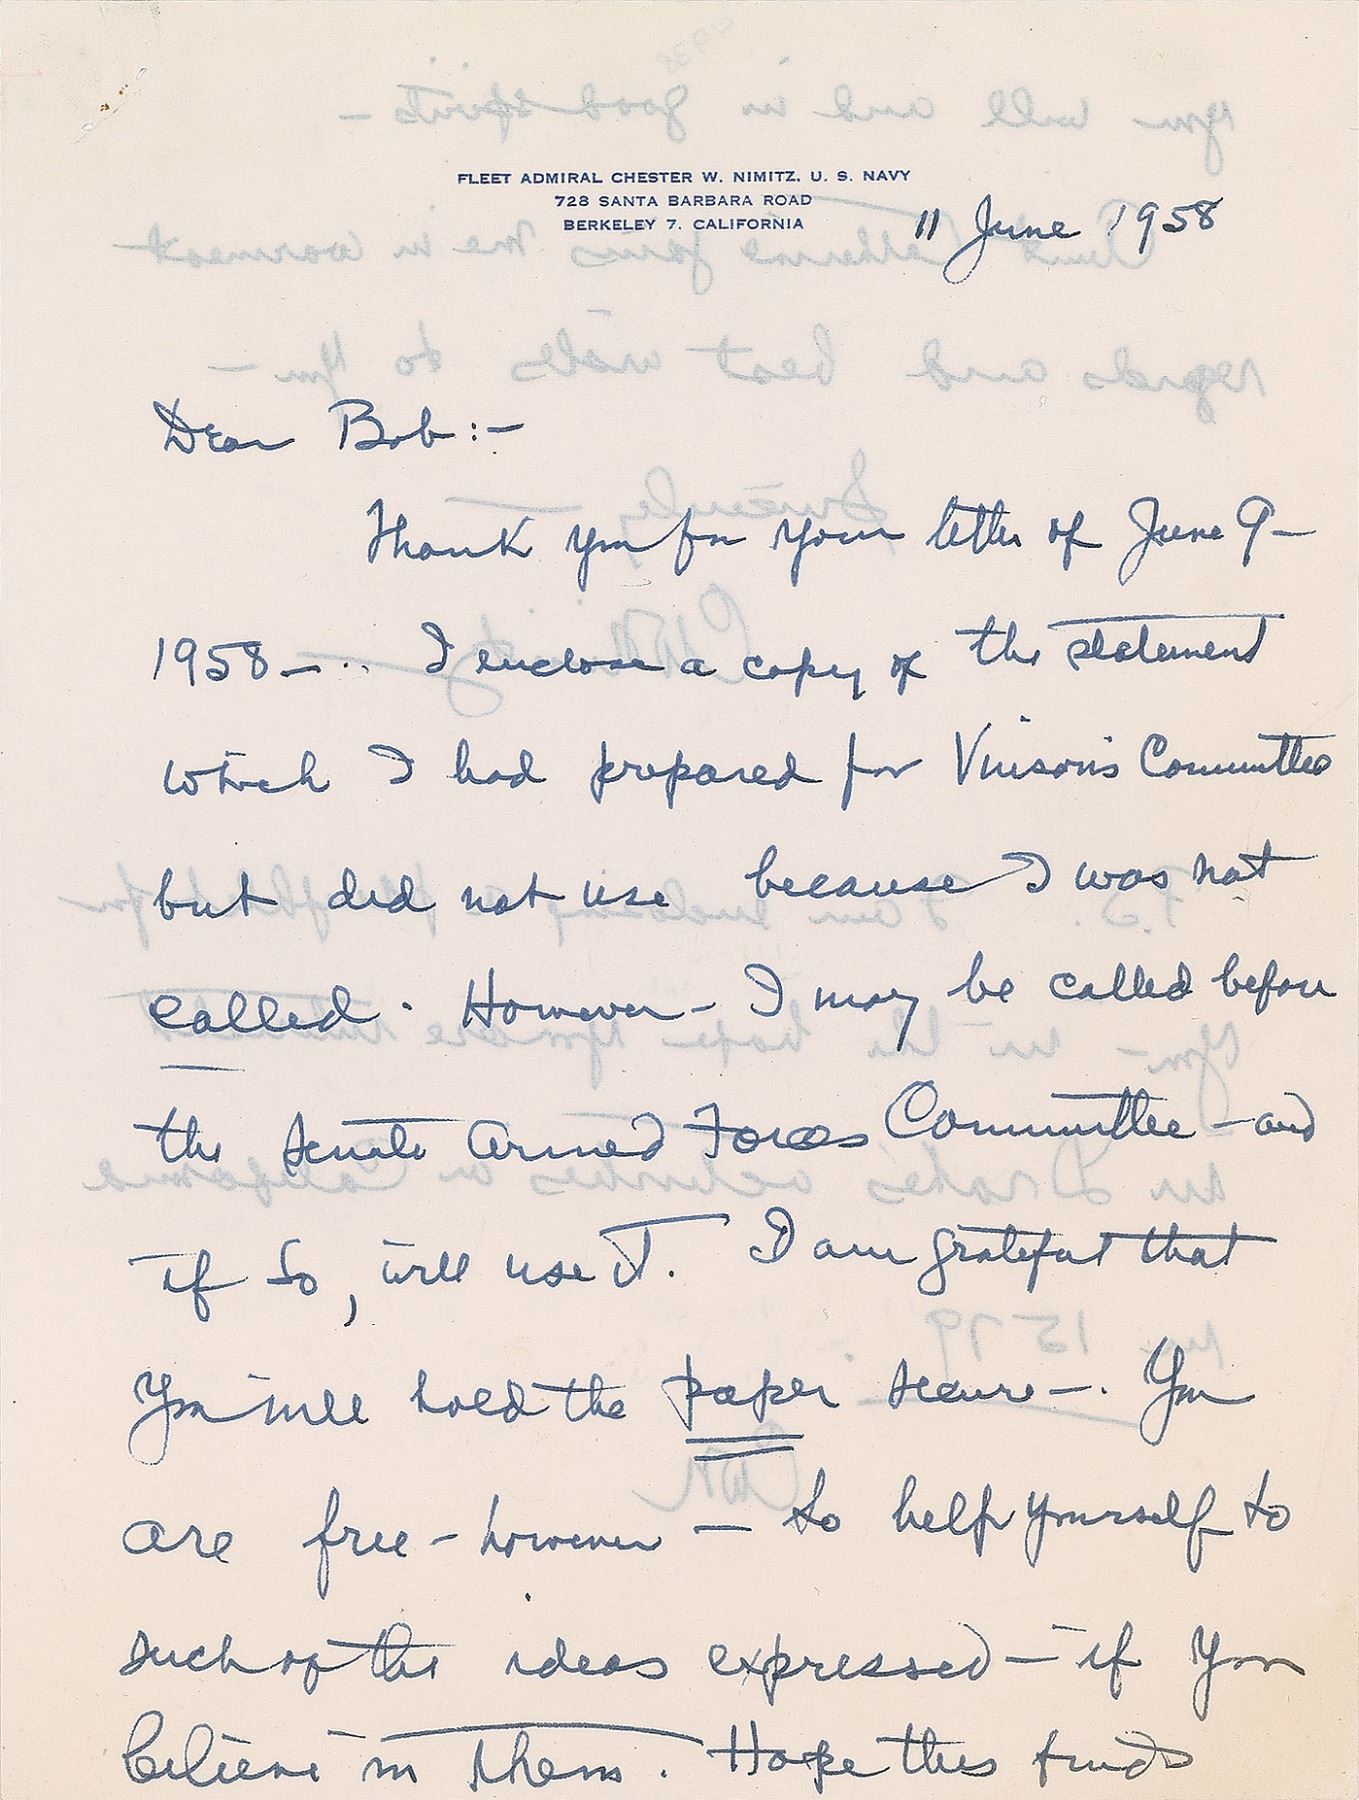 FLEET ADMIRAL CHESTER W. NIMITZ, U. S. NAVY
728 SANTA BARBARA ROAD
BERKELEY 7, CALIFORNIA
11 June 1958
Dear Bob:—
Thank you for your letter of June 9—
1958—.. I enclose a copy of the statement
which I had prepared for Vinson's Committee
but did not use because I was not
called. However— I may be called before
the Senate Armed Forces Committee—and
if so, will use it. I am grateful that
you will hold the paper secure—. You
are free—however— to help yourself to
such of the ideas expressed—if you
believe in them. Hope this finds